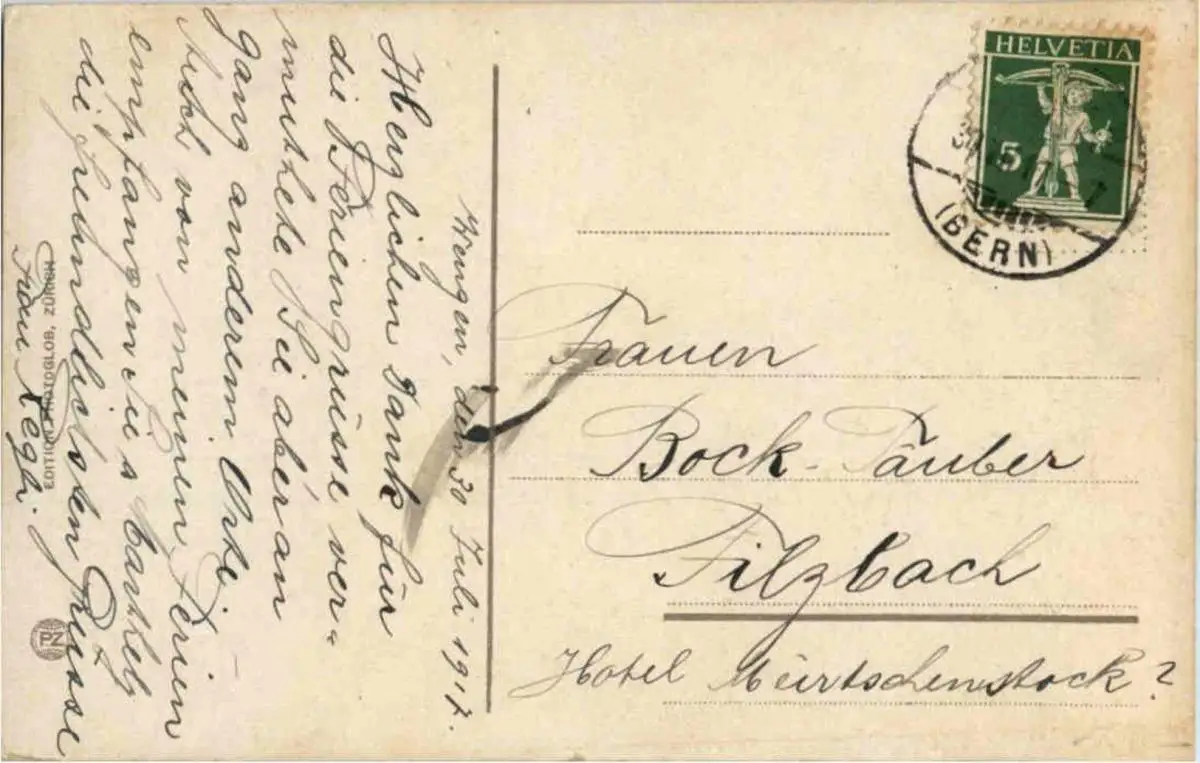 Wengen, den 30 Juli 1917.
Herzlichen Dank für
die Feriengrüsse ver=
mutete Sie aber an
ganz anderem Orte.
Auch von meinen Ferien
empfangen Sie
die freundlichsten Grüsse
Frau
EDITION PHOTOGLOB, ZÜRICH
PZ
HELVETIA
5
(BERN)
Frauen
Bock-Täuber
Filzbach
Hotel Meirtschenstock?